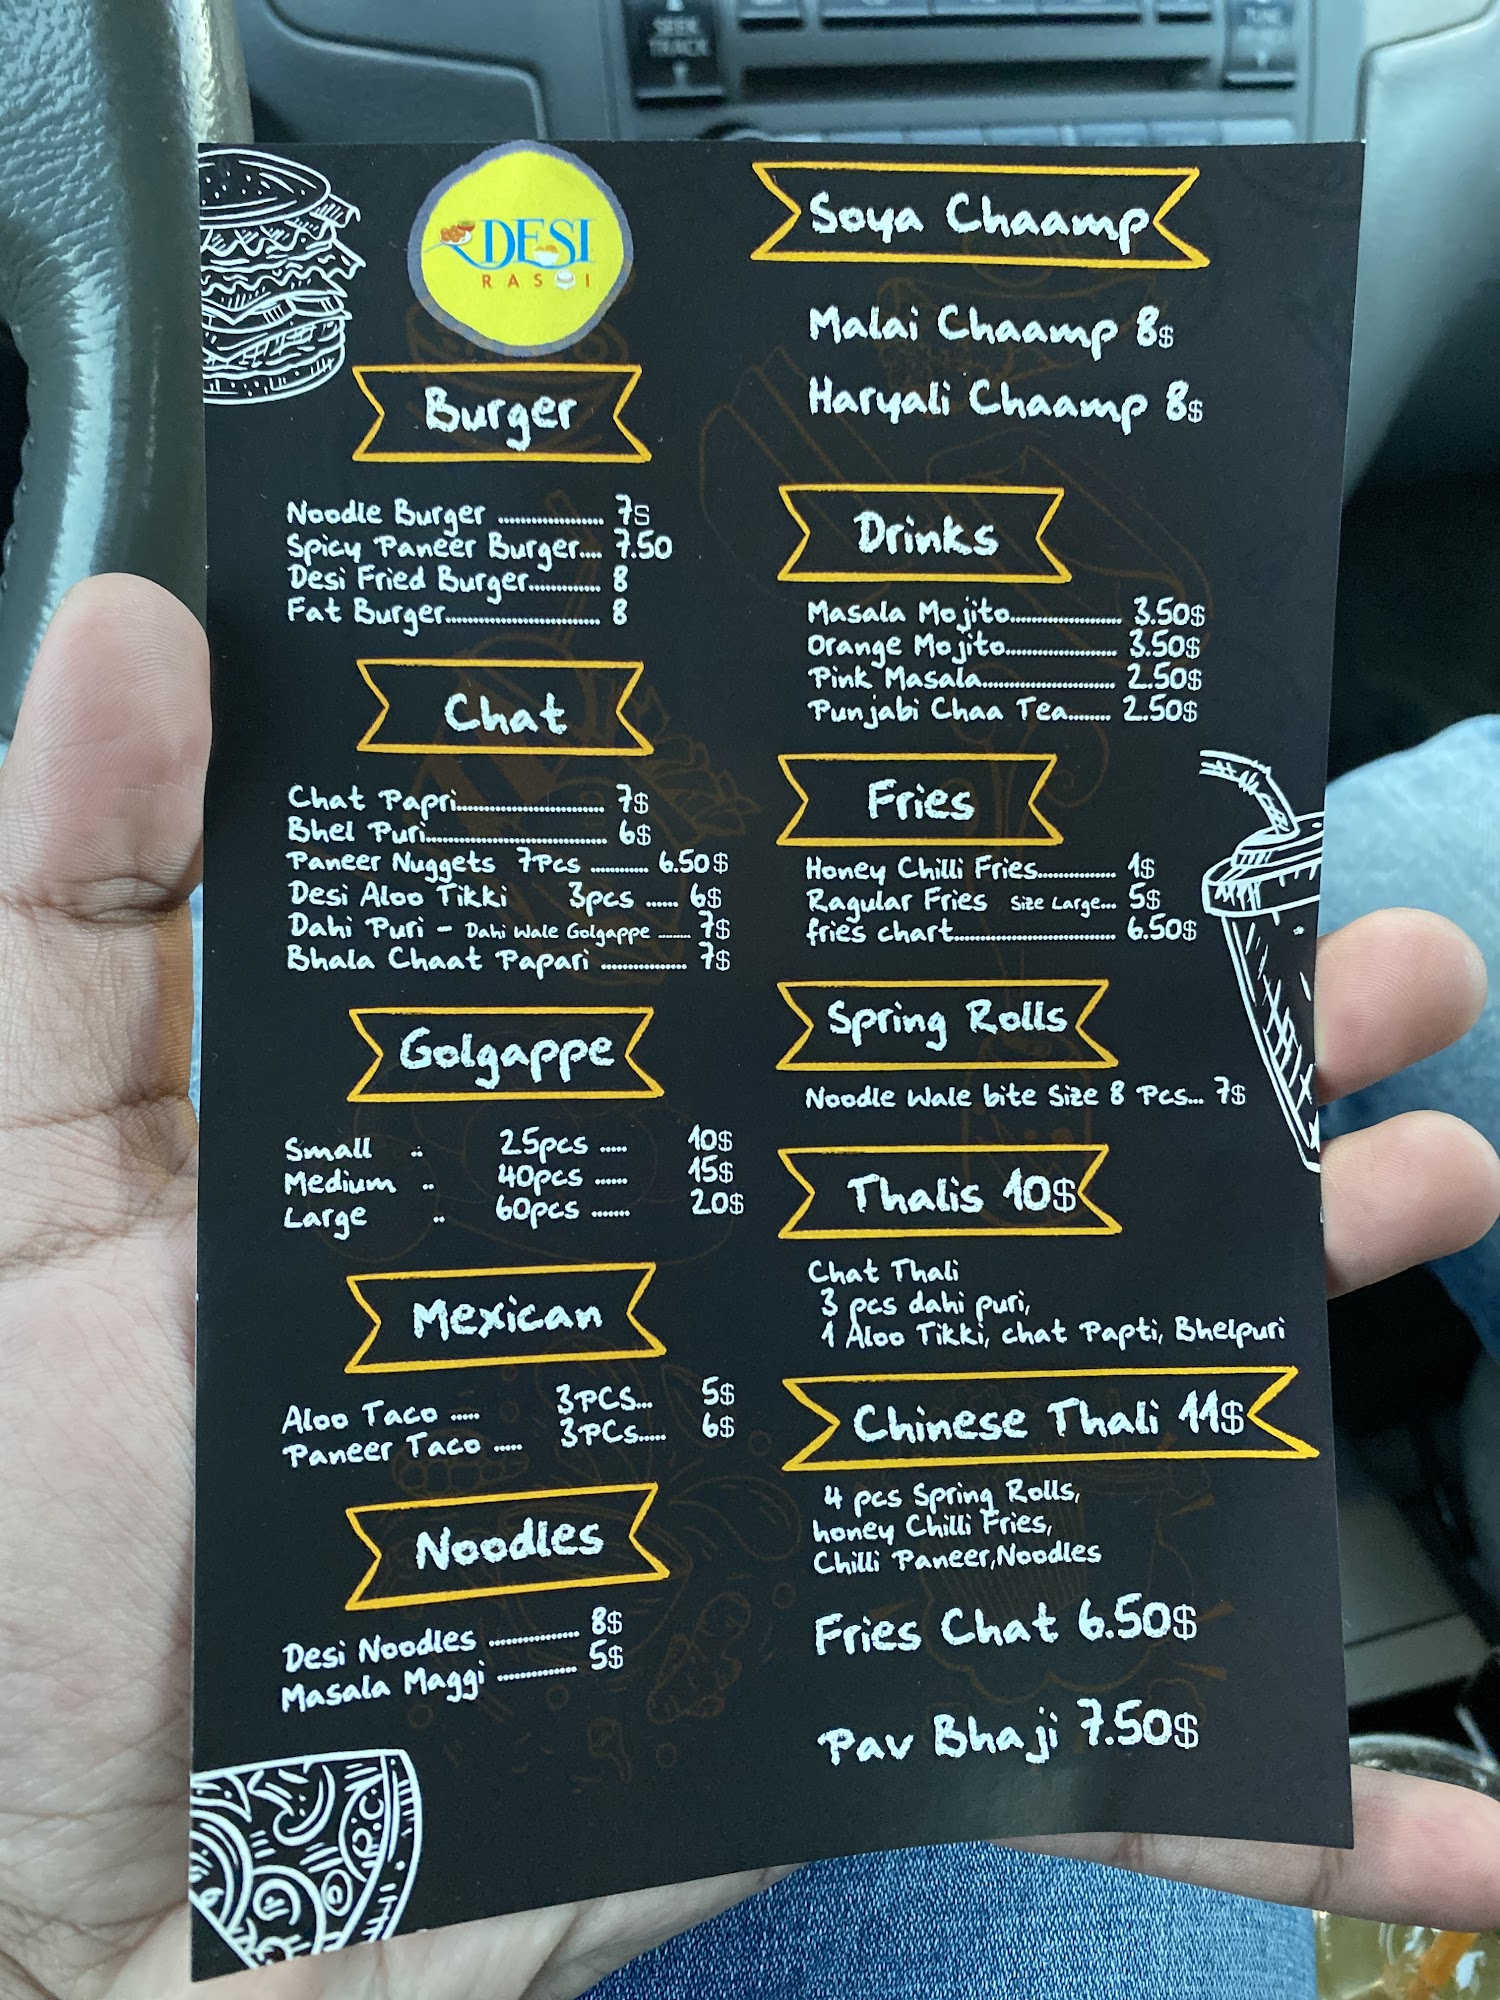 SEEK
TRACK
TUNE
DESI
RASOI
Burger
Noodle Burger ..................... 7S
Spicy Paneer Burger.... 7.50
Desi Fried Burger.............. 8
Fat Burger.............................. 8
Chat
Chat Papri............................. 7$
Bhel Puri................................... 6$
Paneer Nuggets 7Pcs ............ 6.50$
Desi Aloo Tikki 3pcs ...... 6$
Dahi Puri - Dahi Wale Golgappe ........ 7$
Bhala Chaat Papari ................. 7$
Golgappe
Small .. 25pcs ..... 10$
Medium .. 40pcs ...... 15$
Large .. 60pcs ....... 20$
Mexican
Aloo Taco ..... 3PCS... 5$
Paneer Taco ..... 3PCs..... 6$
Noodles
Desi Noodles ................. 8$
Masala Maggi ............... 5$
Soya Chaamp
Malai Chaamp 8$
Haryali Chaamp 8$
Drinks
Masala Mojito...................... 3.50$
Orange Mojito...................... 3.50$
Pink Masala.......................... 2.50$
Punjabi Chaa Tea........ 2.50$
Fries
Honey Chilli Fries............... 1$
Ragular Fries Size Large... 5$
fries chart................................ 6.50$
Spring Rolls
Noodle Wale bite Size 8 Pcs... 7$
Thalis 10$
Chat Thali
3 pcs dahi puri,
1 Aloo Tikki, chat Papti, Bhelpuri
Chinese Thali 11$
4 pcs Spring Rolls,
honey Chilli Fries,
Chilli Paneer,Noodles
Fries Chat 6.50$
Pav Bhaji 7.50$